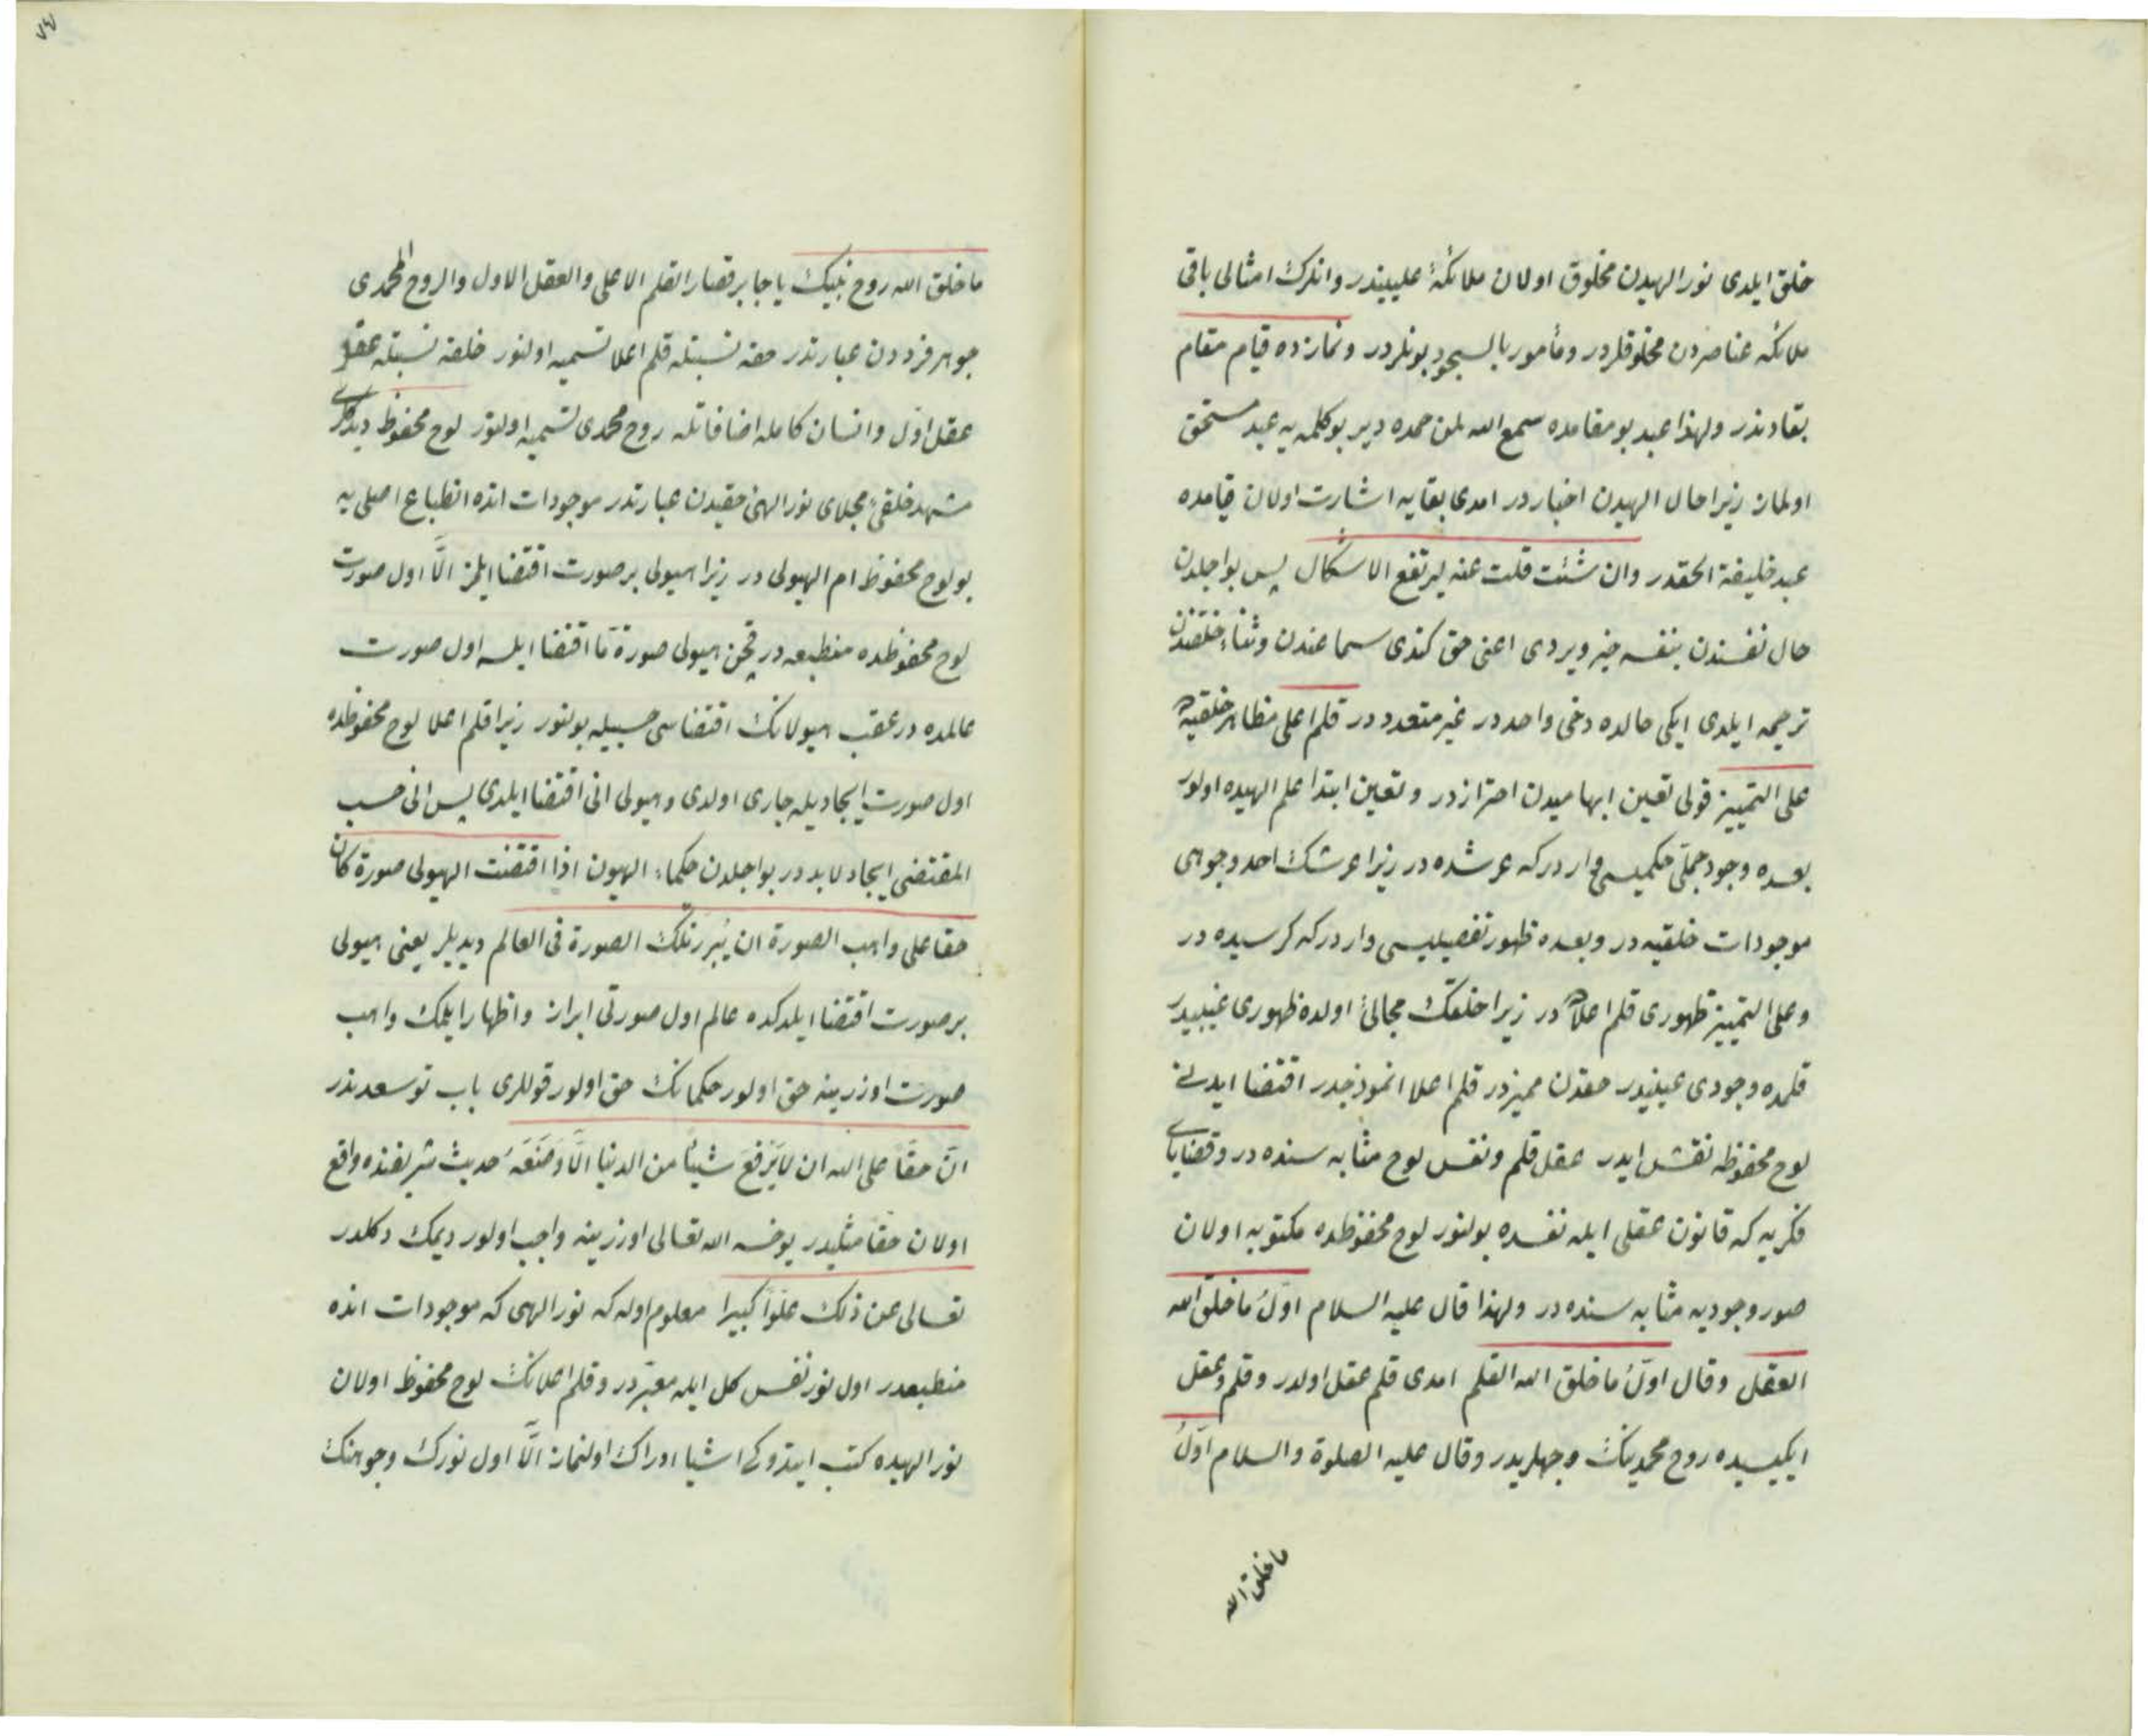 خلق ايلدى نور الهيدن مخلوق اولان ملائكهٔ علييندر وانلرك امثالى باقى
ملائكه عناصردن مخلوقلردر ومأمور بالسجود بونلردر ونمازده قيام مقام
بقادندر ولهذا عبد بو مقامده سمع الله لمن حمده دير بو كلمه يه عبد مستحق
اولماز زيرا حال الهيدن اخباردر امدى بقايه اشارت اولان قيامده
عبد خليفة الحقدر وان شئت قلت عنه ليرتفع الاشكال پس بو اجلدن
حال نفسندن بنفسه خبر ويردى اعنى حق كندى سماعندن وثناء خلقندن
ترجمه ايلدى ايكى حالده دخى واحددر غير متعدددر قلم اعلى مظاهر خلقيه ده
على التمييز قولى تعين ابهاميدن احترازدر وتعين ابتدا علم الهيده اولور
بعده وجود جملى حكميسى واردر كه عرشده در زيرا عرشك احد وجوهى
موجودات خلقيه در وبعده ظهور تفصيليسى واردر كه كرسيده در
وعلى التمييز ظهورى قلم اعلاده در زيرا خلقك مجالئ اولده ظهورى غيبيدر
قلمده وجودى عينيدر حقدن مميزدر قلم اعلا انموذجدر اقتضا ايدنى
لوح محفوظه نقش ايدر عقل قلم ونفس لوح مثابه سنده در وقضاياى
فكريه كه قانون عقلى ايله نفسده بولنور لوح محفوظده مكتوبه اولان
صور وجوديه مثابه سنده در ولهذا قال عليه السلام اول ما خلق الله
العقل وقال اول ما خلق الله القلم امدى قلم عقل اولدر وقلم وعقل
ايكيسيده روح محمدينك وجهلريدر وقال عليه الصلوة والسلام اول
ما خلق الله
ما خلق الله روح نبيك يا جابر فصار القلم الاعلى والعقل الاول والروح المحمدى
جوهر فرددن عبارتدر حقه نسبتله قلم اعلا تسميه اولنور خلقه نسبتله عقل
عقل اول وانسان كامله اضافاتله روح محمدى تسميه اولنور لوح محفوظ ديدكلرى
مشهد خلقئ مجلاى نور الهئ حقيدن عبارتدر موجودات انده انطباع اصلى يه
بو لوح محفوظ ام الهيولى در زيرا هيولى بر صورت اقتضا ايلمز الا اول صورت
لوح محفوظده منطبعه در قچن هيولى صورة ما اقتضا ايلسه اول صورت
عالمده در عقب هيولانك اقتضاسى حسبيله بولنور زيرا قلم اعلا لوح محفوظده
اول صورت ايجاديله جارى اولدى وهيولى انى اقتضا ايلدى پس انى حسب
المقتضى ايجاد لابددر بو اجلدن حكماء الهيون اذا اقتضت الهيولى صورة كان
حقا على واهب الصورة ان يبرز تلك الصورة فى العالم ديديلر يعنى هيولى
بر صورت اقتضا ايلدكده عالم اول صورتى ابراز واظهار ايلمك واهب
صورت اوزرينه حق اولور حكمانك حق اولور قوللرى باب توسعدندر
ان حقا على الله ان لا يرفع شيئا من الدنيا الا وضعه حديث شريفنده واقع
اولان حقا مثليدر يوخسه الله تعالى اوزرينه واجب اولور ديمك دكلدر
تعالى عن ذلك علوا كبيرا معلوم اوله كه نور الهى كه موجودات انده
منطبعدر اول نور نفس كل ايله معبردر وقلم اعلانك لوح محفوظ اولان
نور الهيده كتب ايتدوكى اشيا ادراك اولنماز الا اول نورك وجوهنك